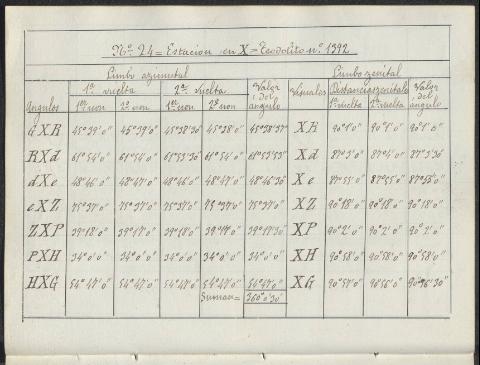 Nº 24 = Estacion en X = Teodolito nº 1392
Limbo azimutal Limbo zenital
1ª vuelta 2ª vuelta Valor del angulo Visuales Distancias zenitales Valor del angulo
Angulos 1er non 2º non 1er non 2º non 1ª vuelta 2ª vuelta
GXR 45°39'0" 45°39'0" 45°38'30" 45°38'0" 45°38'37" XR 90°1'0" 90°1'0" 90°1'0"
RXd 61°54'0" 61°54'0" 61°53'30" 61°54'0" 61°53'53" Xd 87°3'0" 87°4'0" 87°3'30"
dXe 48°46'0" 48°47'0" 48°46'0" 48°47'0" 48°46'30" Xe 87°55'0" 87°55'0" 87°55'0"
eXZ 75°37'0" 75°37'0" 75°37'0" 75°37'0" 75°37'0" XZ 90°18'0" 90°18'0" 90°18'0"
ZXP 39°18'0" 39°17'0" 39°18'0" 39°17'0" 39°17'30" XP 90°2'0" 90°2'0" 90°2'0"
PXH 34°0'0" 34°0'0" 34°0'0" 34°0'0" 34°0'0" XH 90°58'0" 90°58'0" 90°58'0"
HXG 54°47'0" 54°47'0" 54°47'0" 54°47'0" 54°47'0" XG 90°57'0" 90°56'0" 90°56'30"
Suman = 360°0'30"